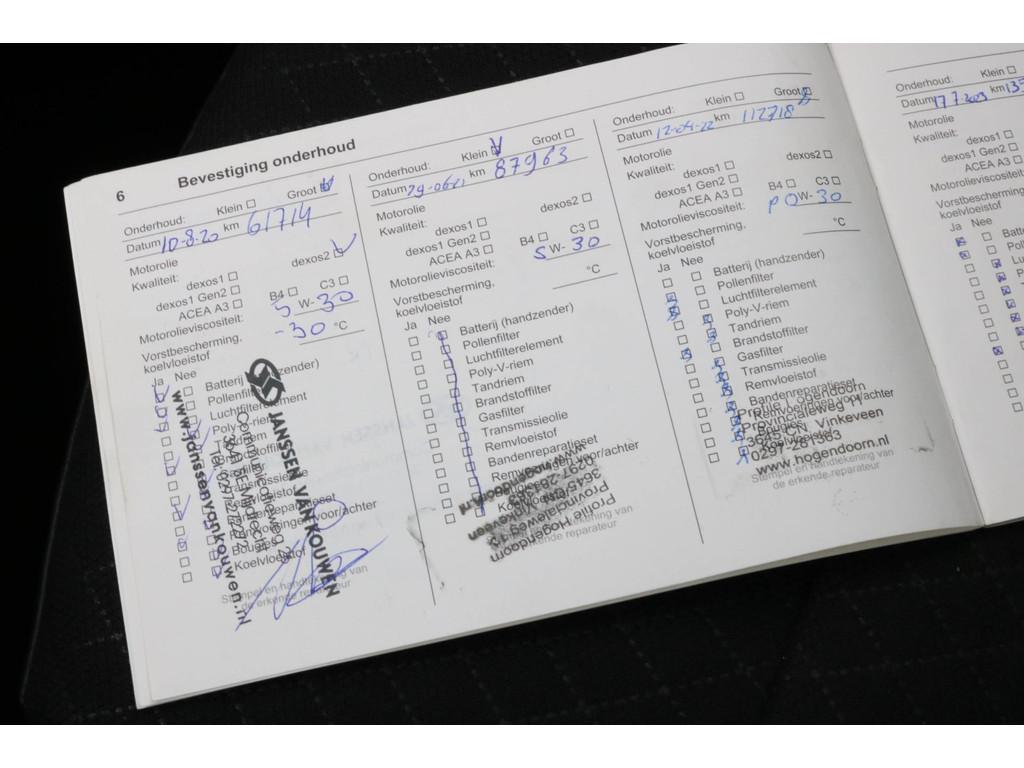 6 Bevestiging onderhoud
Onderhoud: Klein Groot
Datum 10-8-20 km 61714
Motorolie
Kwaliteit: dexos1 dexos2
dexos1 Gen2
ACEA A3 B4 C3
Motorolieviscositeit: 5 W- 30
Vorstbescherming,
koelvloeistof -30 °C
Ja Nee
Batterij (handzender)
Pollenfilter
Luchtfilterelement
Poly-V-riem
Tandriem
Bougies
Koelvloeistof
JANSSEN VAN KOUWEN
Communicatieweg
www.janssenvankouwen.nl
Stempel en handtekening van
de erkende reparateur
Onderhoud: Klein Groot
Datum 29-06-21 km 87963
Motorolie
Kwaliteit: dexos1 dexos2
dexos1 Gen2
ACEA A3 B4 C3
Motorolieviscositeit: 5 W- 30
Vorstbescherming,
koelvloeistof °C
Ja Nee
Batterij (handzender)
Pollenfilter
Luchtfilterelement
Poly-V-riem
Tandriem
Brandstoffilter
Gasfilter
Transmissieolie
Remvloeistof
Bandenreparatieset
Remvoeringen voor/achter
Profile Hogendoorn
Provincialeweg
Onderhoud: Klein Groot
Datum 12-04-22 km 112718
Motorolie
Kwaliteit: dexos1 dexos2
dexos1 Gen2
ACEA A3 B4 C3
Motorolieviscositeit: W- 30
Vorstbescherming,
koelvloeistof °C
Ja Nee
Batterij (handzender)
Pollenfilter
Luchtfilterelement
Poly-V-riem
Tandriem
Brandstoffilter
Gasfilter
Transmissieolie
Remvloeistof
Bandenreparatieset
Remvoeringen voor/achter
Profile Hogendoorn
Provincialeweg 11
3645 CN Vinkeveen
0297-281383
www.hogendoorn.nl
Stempel en handtekening van
de erkende reparateur
Onderhoud: Klein
Datum km
Motorolie
Kwaliteit:
dexos1
dexos1 Gen2
ACEA A3
Motorolieviscositeit:
Vorstbescherming,
koelvloeistof
Ja Nee